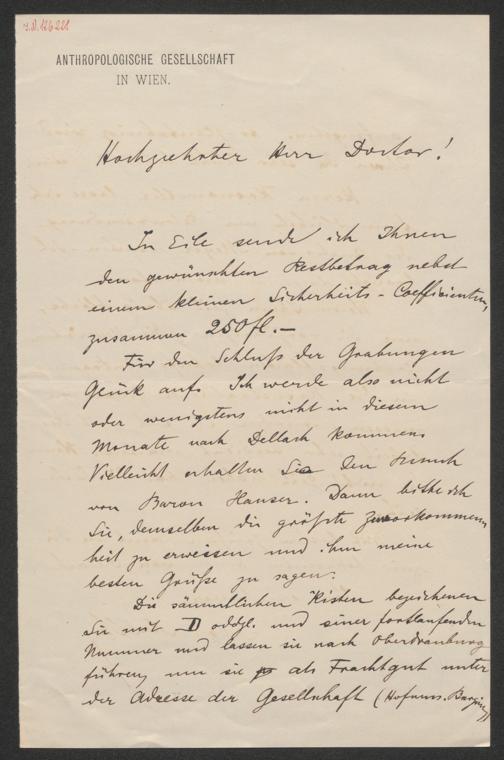 J.N. 126221
ANTHROPOLOGISCHE GESELLSCHAFT
IN WIEN.
Hochgeehrter Herr Doctor!
In Eile sende ich Ihnen
den gewünschten Restbetrag nebst
einem kleinen Sicherheits-Coefficienten,
zusammen 250fl.–
Für den Schluß der Grabungen
Glück auf. Ich werde also nicht
oder wenigstens nicht in diesem
Monate nach Dellach kommen.
Vielleicht erhalten Sie den Besuch
von Baron Hauser. Dann bitte ich
Sie, demselben die größte Zuvorkommen
heit zu erweisen und ihm meine
besten Grüße zu sagen.
Die sämmtlichen Kisten bezeichenen
Sie mit D und einer fortlaufenden
Nummer und lassen sie nach Oberdrauburg
führen, um sie als Frachtgut unter
der Adresse der Gesellschaft (Hofmus. Burgring